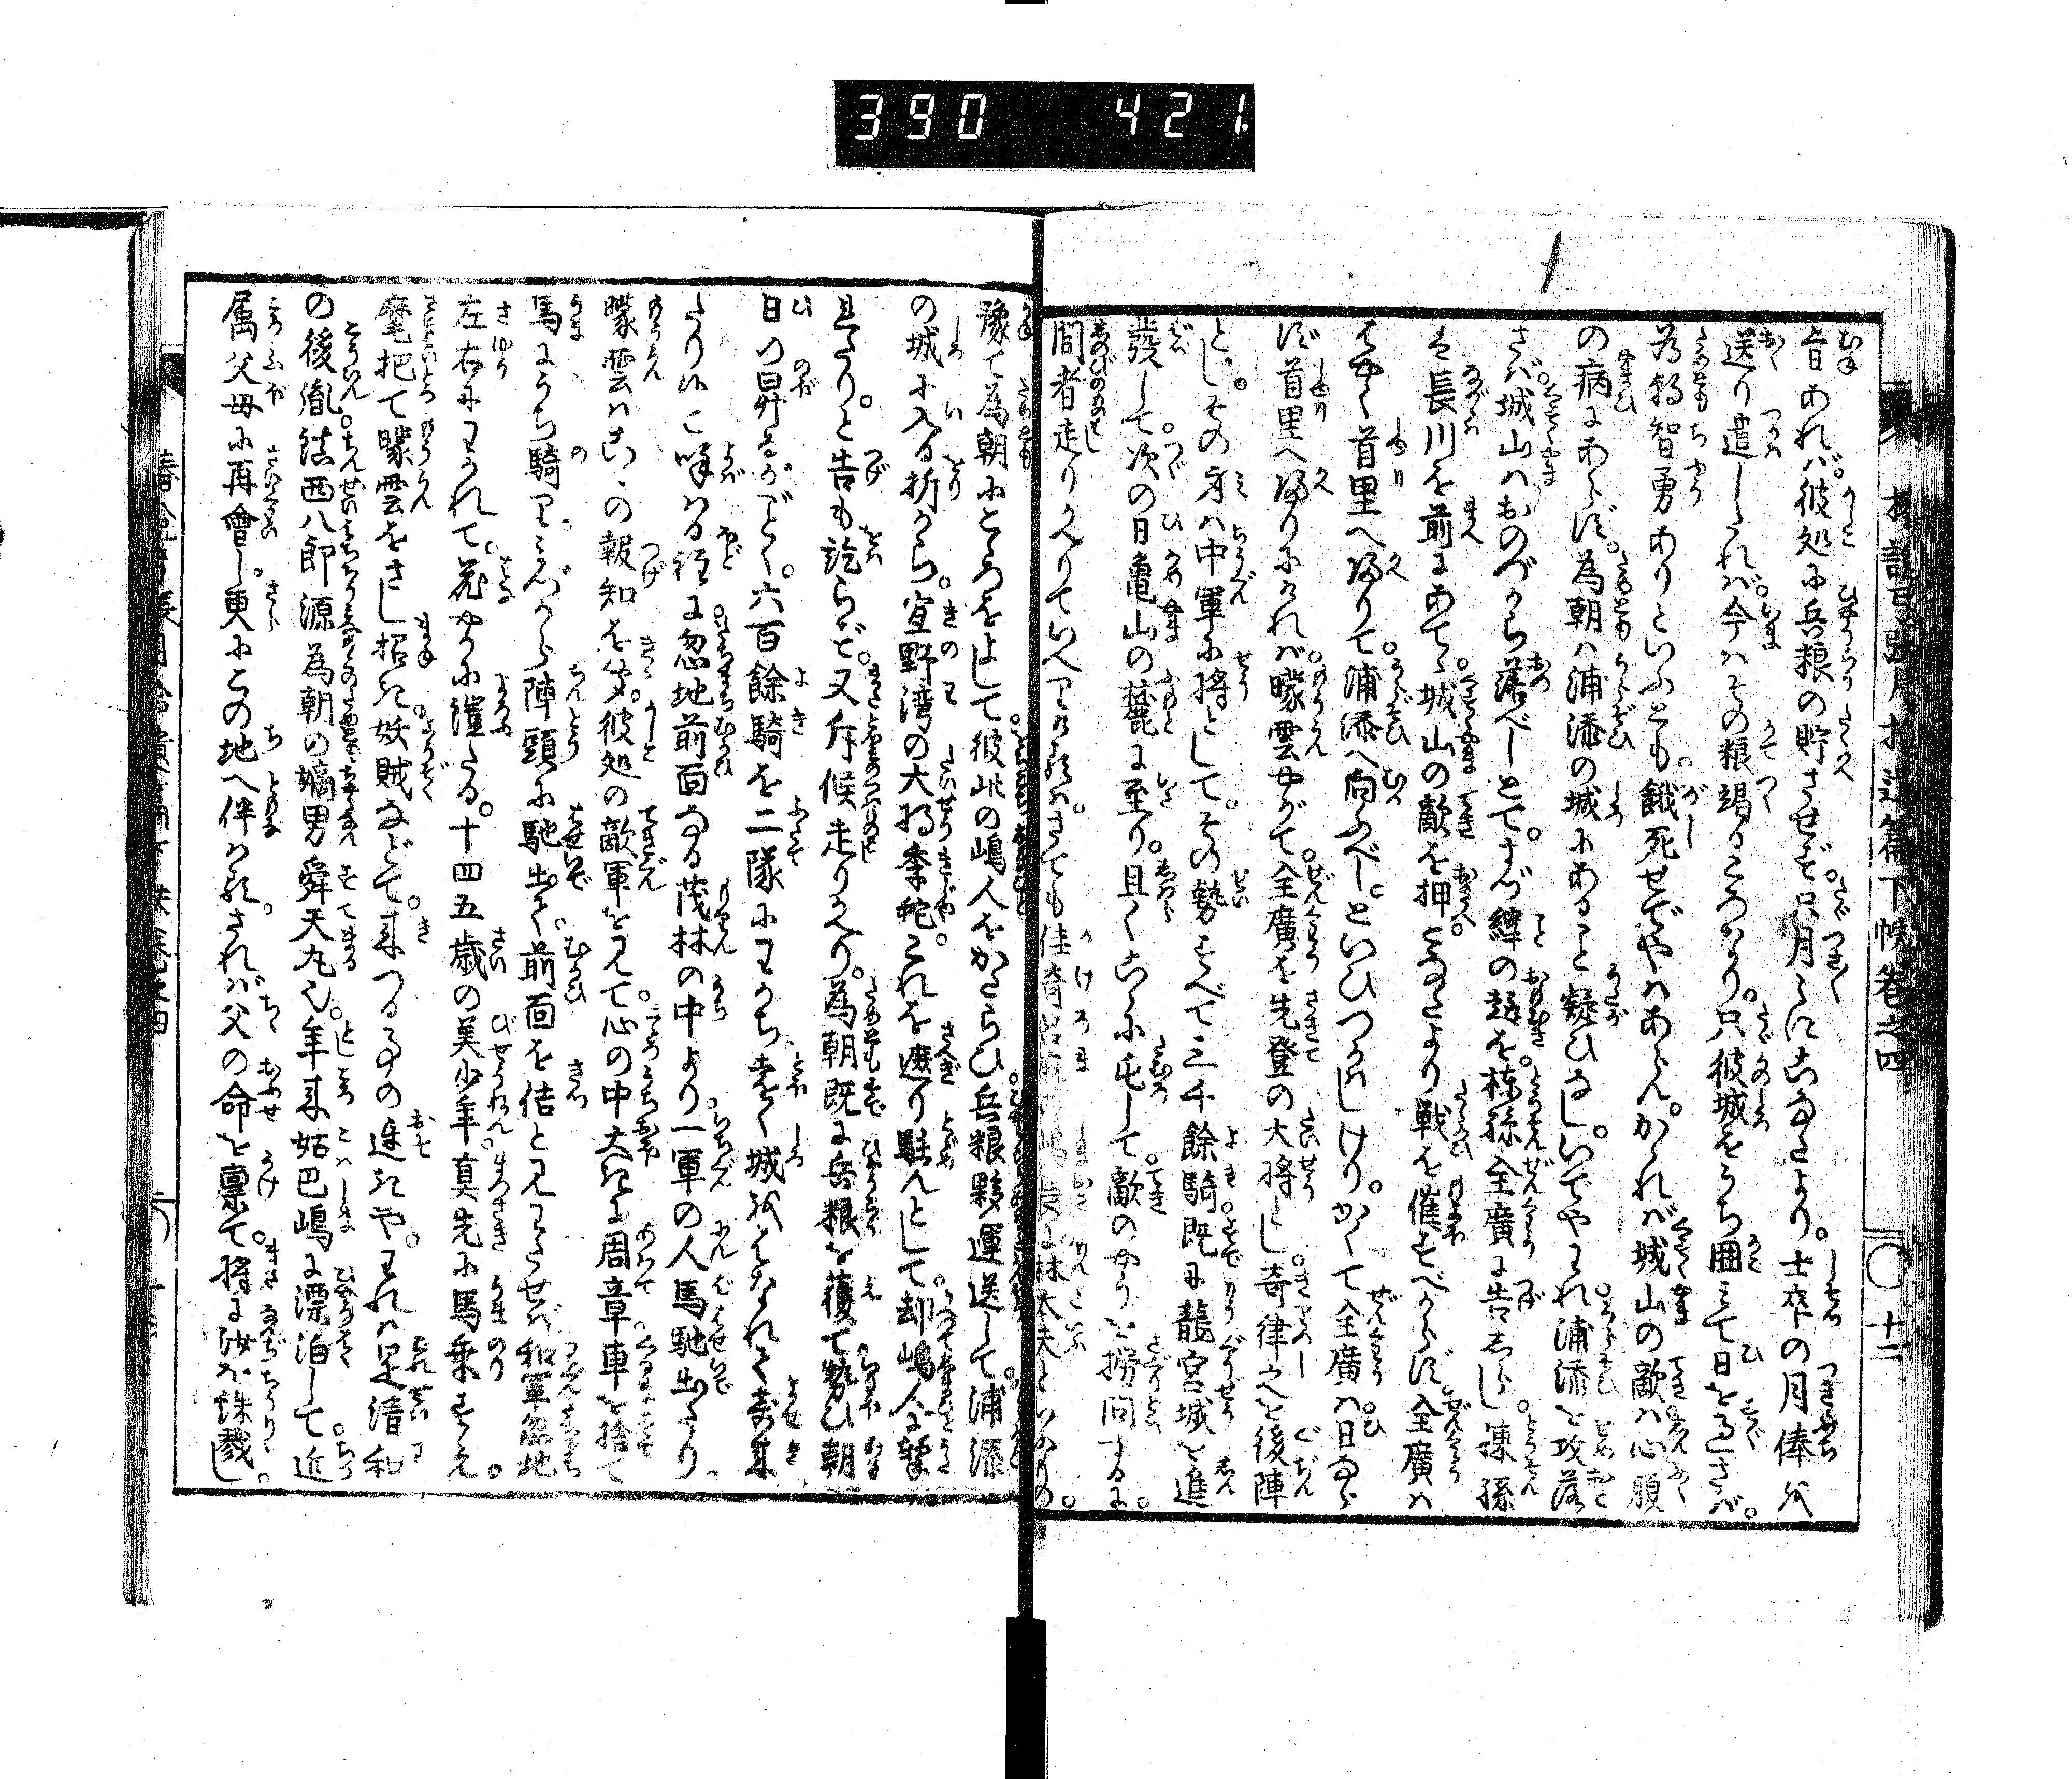 390 421
旨あれば。彼処に兵粮の貯させず。只月々にこなたより。士卒の月俸を
送り遣したれば。今はその粮竭るころなり。只彼城をうち囲みて日を過さば。
為朝智勇ありといふとも。餓死せでやはあらん。かゝれば城山の敵は心腹
の病にあらず。為朝は浦添の城にあること疑ひなし。いでやわれ浦添を攻落
さば。城山はおのづから落べしとて。まづ縡の趣を。棟孫全廣に告しらし。棟孫
は長川を前にあてゝ。城山の敵を押。こなたより戦を催すべからず。全廣は
はやく首里へ歸りて。浦添へ向ふべしといひつかはしけり。かくて全廣は。日ならず
首里へ歸りにければ。曚雲やがて。全廣を先登の大將とし。奇律之を後陣
とし。その身は中軍に將として。その勢すべて三千餘騎。既に龍宮城を進
發して。次の日亀山の麓に至り。且くこゝに屯して。敵のやうを撈問するに。
間者走りかへりていへりけるは。さても佳奇呂麻の嶋長に林太夫といふもの。
豫て為朝にこゝろをよして。彼此の嶋人をかたらひ。兵粮夥運送して。浦添
の城に入る折から。宜野湾の大將季蛇。これを遮り駐んとして。却嶋人に撃
れたりと告も訖らず。又斥候走りかへり。為朝既に兵粮を獲て勢ひ朝
日の昇るがごとく。六百餘騎を二隊にわかち。遠く城をはなれて寄來
たり候と呼はる程に。忽地前面なる茂林の中より。一軍の人馬馳出たり
曚雲はこの報知をきゝ。彼処の敵軍を見て。心の中大きに周章。車を捨て
馬にうち騎り。みづから陣頭に馳出て。前面を佶と見わたせば。和軍忽地
左右にわかれて。花やかに鎧たる。十四五歳の美少年。真先に馬乗すえ。
麾把て曚雲をさし招き。妖賊などて。來つる事の遅きや。われは是清和
の後胤。鎮西八郎源為朝の嫡男舜天丸也。年來姑巴嶋に漂泊して。近
属父母に再會し。更にこの地へ伴はる。されば父の命を稟て。將に汝を誅戮し。